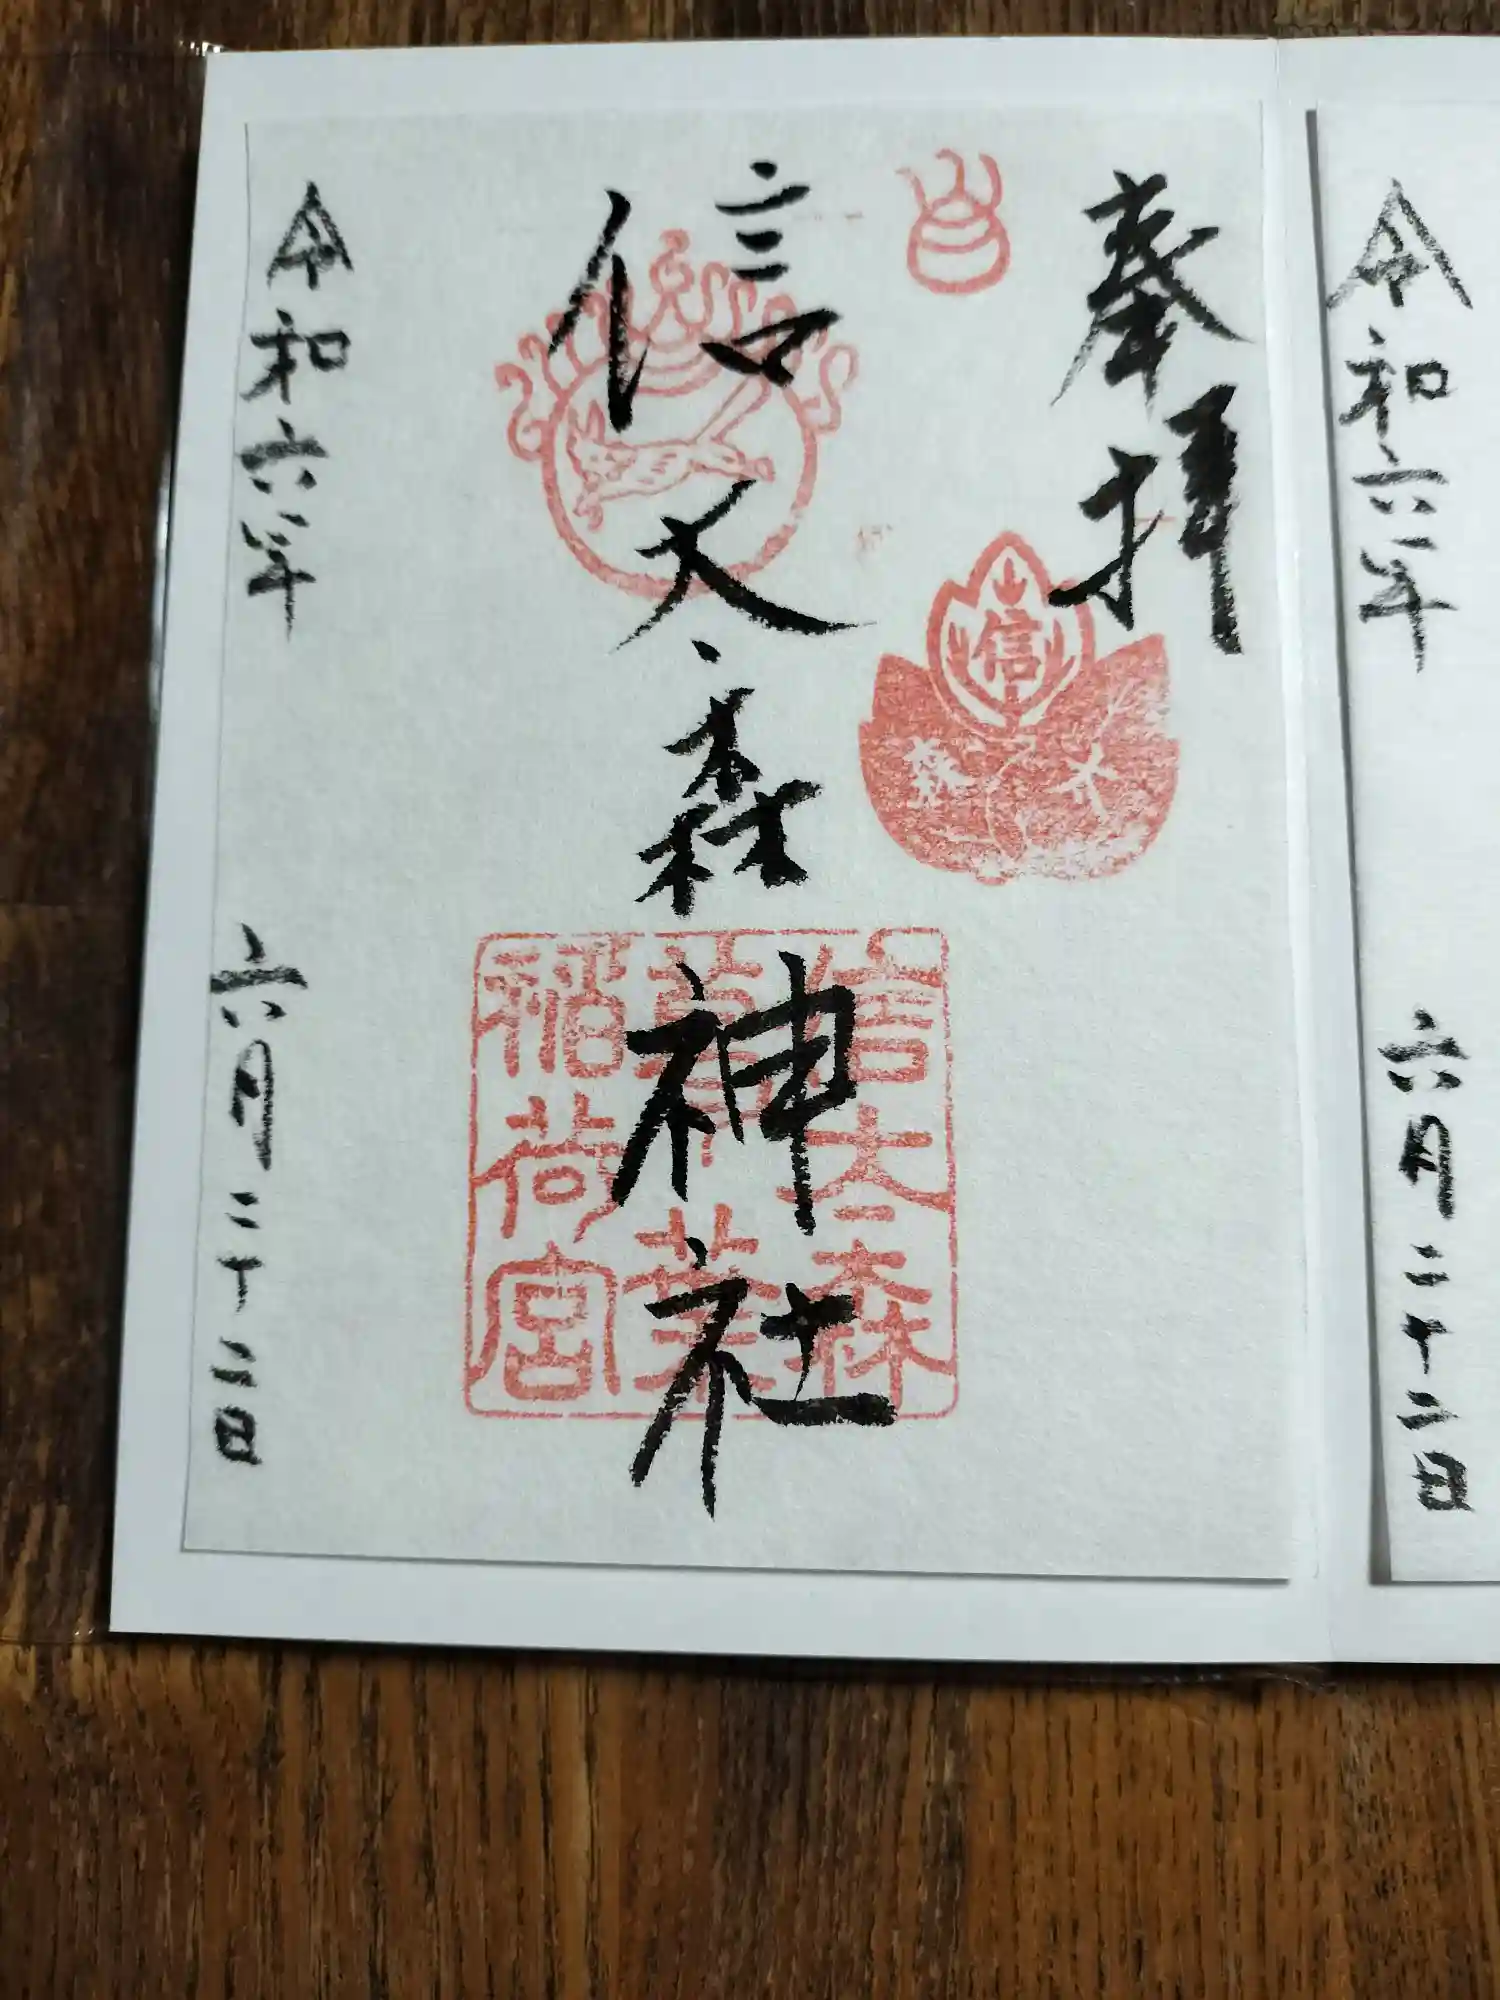 令和六年 六月二十二日
奉拝
信
太
森
信太森神社
信太森
葛葉
稲荷宮
令和六年 六月二十二日